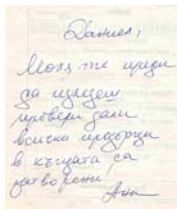 Даниел,
Моля те преди
да излезеш
провери дали
всички прозорци
в къщата са
затворени!
Ани